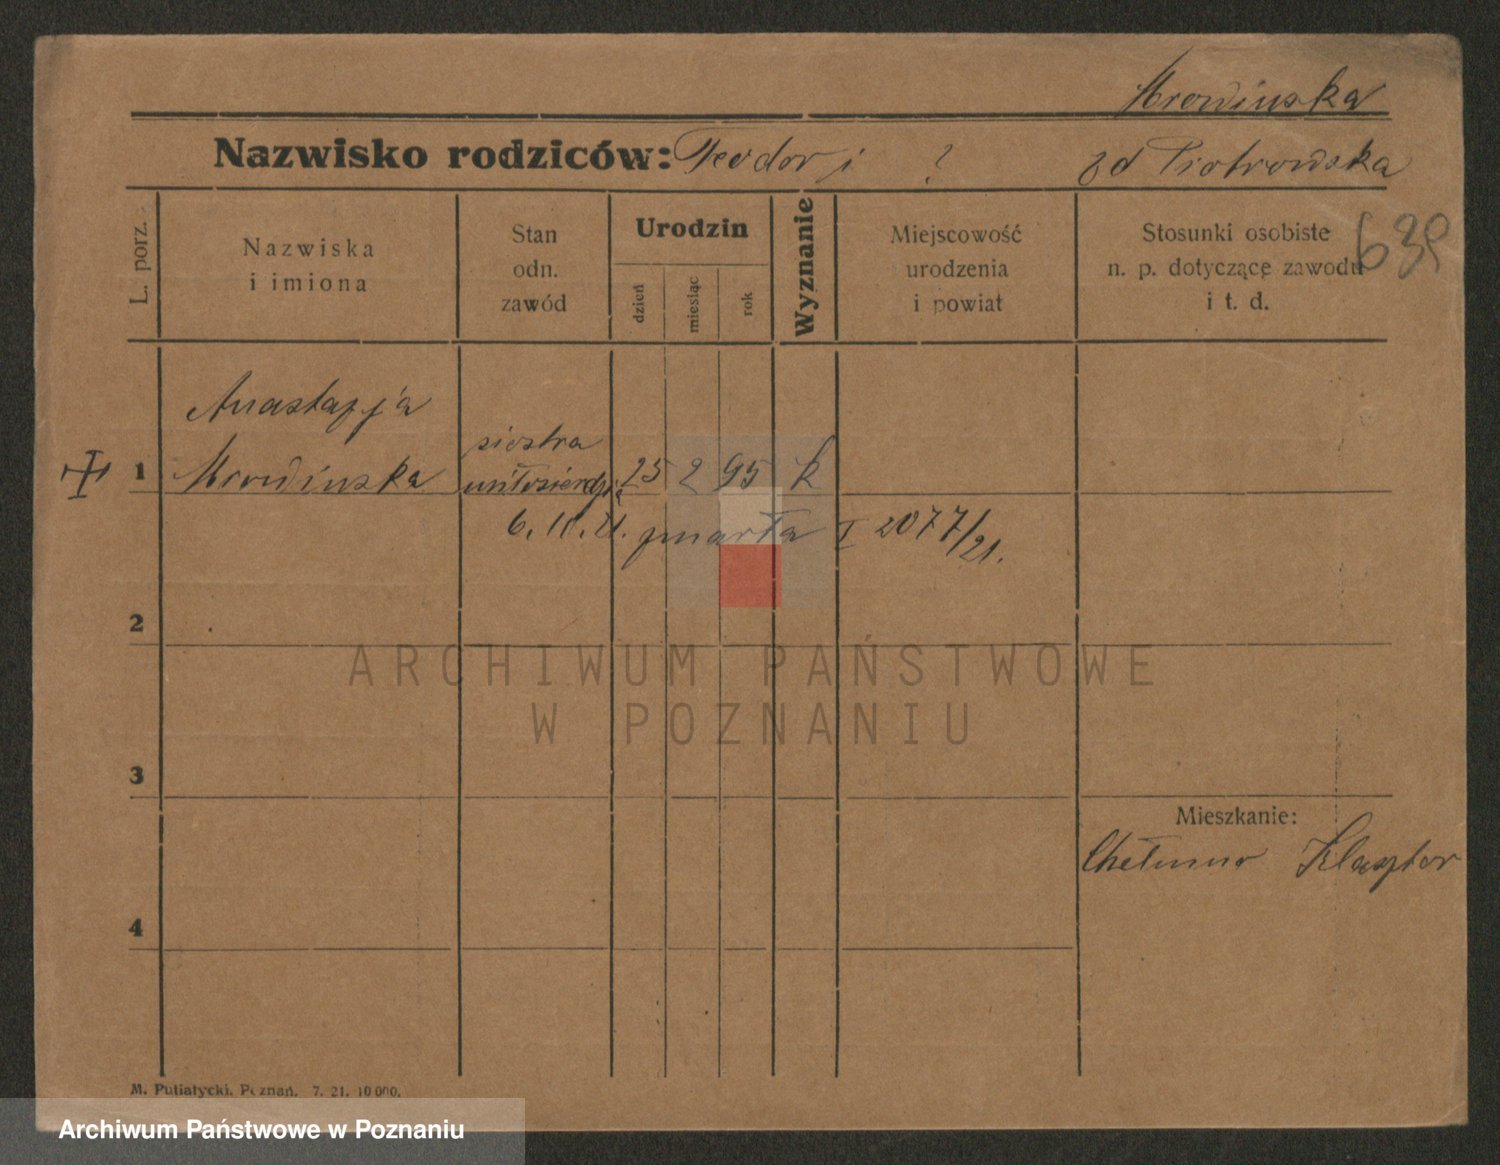 Mrowińska
Nazwisko rodziców: Teodor i ? zd Piotrowska
639
L. porz.
Nazwiska
i imiona
Stan
odn.
zawód
Urodzin
dzień
miesiąc
rok
Wyznanie
Miejscowość
urodzenia
i powiat
Stosunki osobiste
n. p. dotyczącę zawodu
i t. d.
1
Anastazja
Mrowińska
siostra
miłosierdzia
25 2 95 k
6. 11. 21. zmarła I 2077/21.
2
3
4
Mieszkanie:
Chełmno Klasztor
M. Putiatycki, Poznań. 7. 21. 10 000.
ARCHIWUM PAŃSTWOWE
W POZNANIU
Archiwum Państwowe w Poznaniu